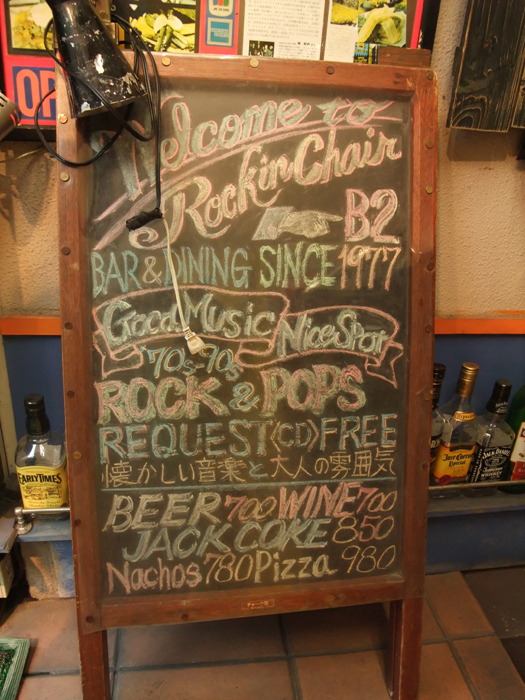 Welcome to
Rockin Chair
B2
BAR & DINING SINCE 1977
Good Music Nice Spot
'70s-'90s
ROCK & POPS
REQUEST <CD> FREE
懐かしい音楽と大人の雰囲気
BEER 700 WINE 700
JACK COKE 850
Nachos 780 Pizza 980
EARLY TIMES
Jose Cuervo
Especial
JACK DANIEL'S
OP